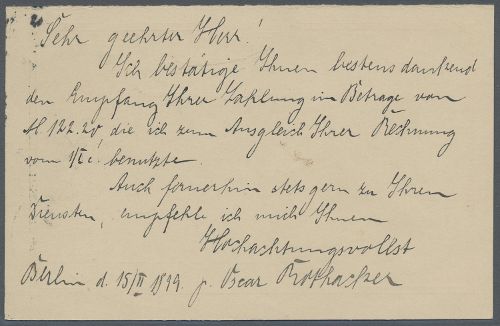 Sehr geehrter Herr!
Ich bestätige Ihnen bestens dankend
den Empfang Ihrer Zahlung im Betrage von
M 122.20 die ich zum Ausgleich Ihrer Rechnung
vom 1/II c. benutzte.
Auch fernerhin stets gern zu Ihren
Diensten, empfehle ich mich Ihnen
Hochachtungsvollst
Berlin d. 15/II 1899. p. Oscar Rothacker